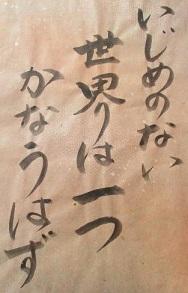 いじめのない
世界は一つ
かなうはず